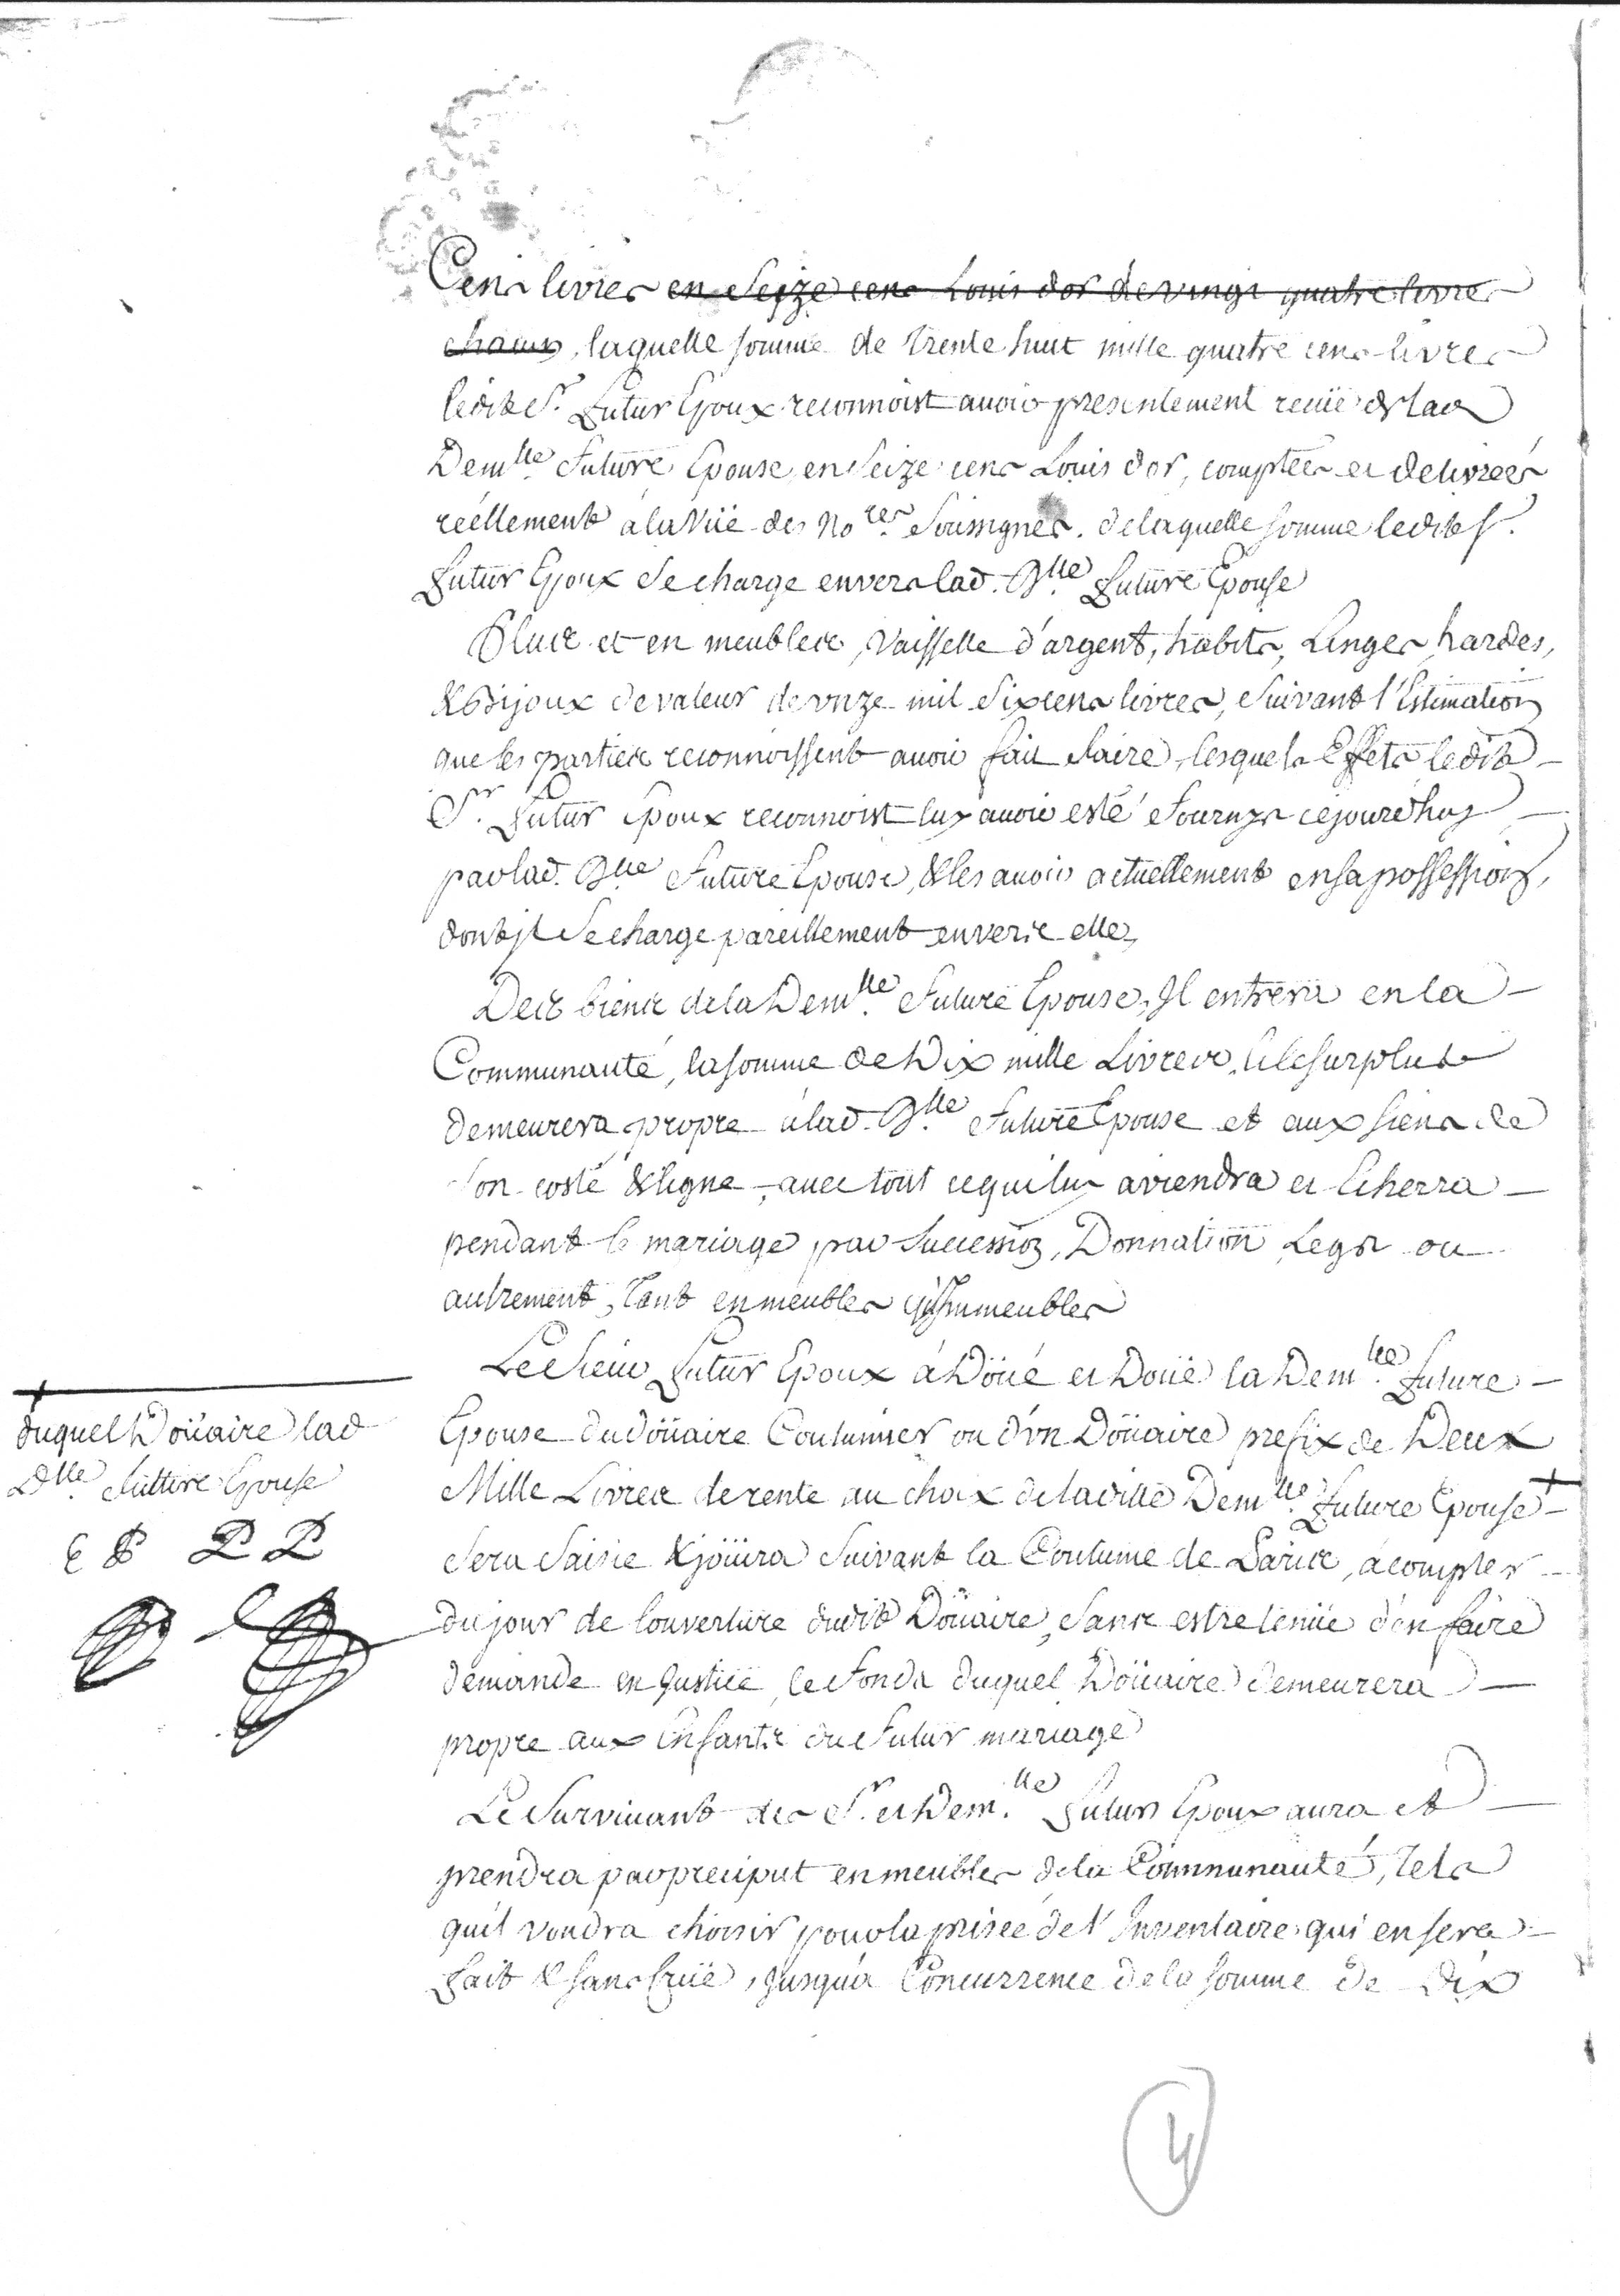 Cens livres en Seize cens Louis dor de vingt quatre livres
chacun, laquelle somme de trente huit mille quatre cens livres
ledit Sr. Futur Epoux reconnoist avoir presentement reçüe de lad
Demlle Future Epouse, en Seize cens Louis dor, comptées et delivrées
réellement à la Vüe des Nores Soussignés. de laquelle somme ledit Sr.
Futur Epoux Se charge envers lad. Dlle Future Epouse
Plus et en meubles, Vaisselle d'argent, habits, Linges, hardes,
& Bijoux de valeur de onze mil Six cens livres, Suivant l'Estimation
que les parties reconnoissent avoir fait faire, lesquels Effets ledit
Sr. Futur Epoux reconnoist luy avoir esté Fournys cejourd'huy
par lad. Dlle Future Epouse, & les avoir actuellement en sa possession,
dont jl Se charge pareillement envers elle,
Des biens de la Demlle Future Epouse, Il entrera en la
Communauté, la somme de Dix mille Livres, et le surplus
demeurera propre à lad. Dlle Future Epouse et aux siens de
Son costé & ligne, avec tout ce qui luy aviendra et Echerra
pendant le mariage par Succession, Donnation, Legs ou
autrement, Tant en meubles qu'Immeubles
Le Sieur Futur Epoux à Doüé et Doüe la Demlle Future
Epouse du doüaire Coutumier ou d'vn Doüaire prefix de Deux
Mille Livres de rente au choix de laditte Demlle Future Epouse +
Sera Saisie & joüira Suivant la Coutume de Paris, à compter
du jour de l'ouverture dudit Doüaire, Sans estre tenüe d'en faire
demande en Justice, le Fonds duquel Doüaire demeurera
propre aux Enfants du Futur mariage
+
duquel Doüaire lad
Dlle Future Epouse
Le Survivant des Sr. et Demlle Futurs Epoux aura et
prendra par preciput en meubles de la Communauté, Tels
qu'il voudra choisir pour la prisée de l'Inventaire qui en sera
Fait & sans Crüe, Jusqu'à Concurrence de la somme de Dix
4